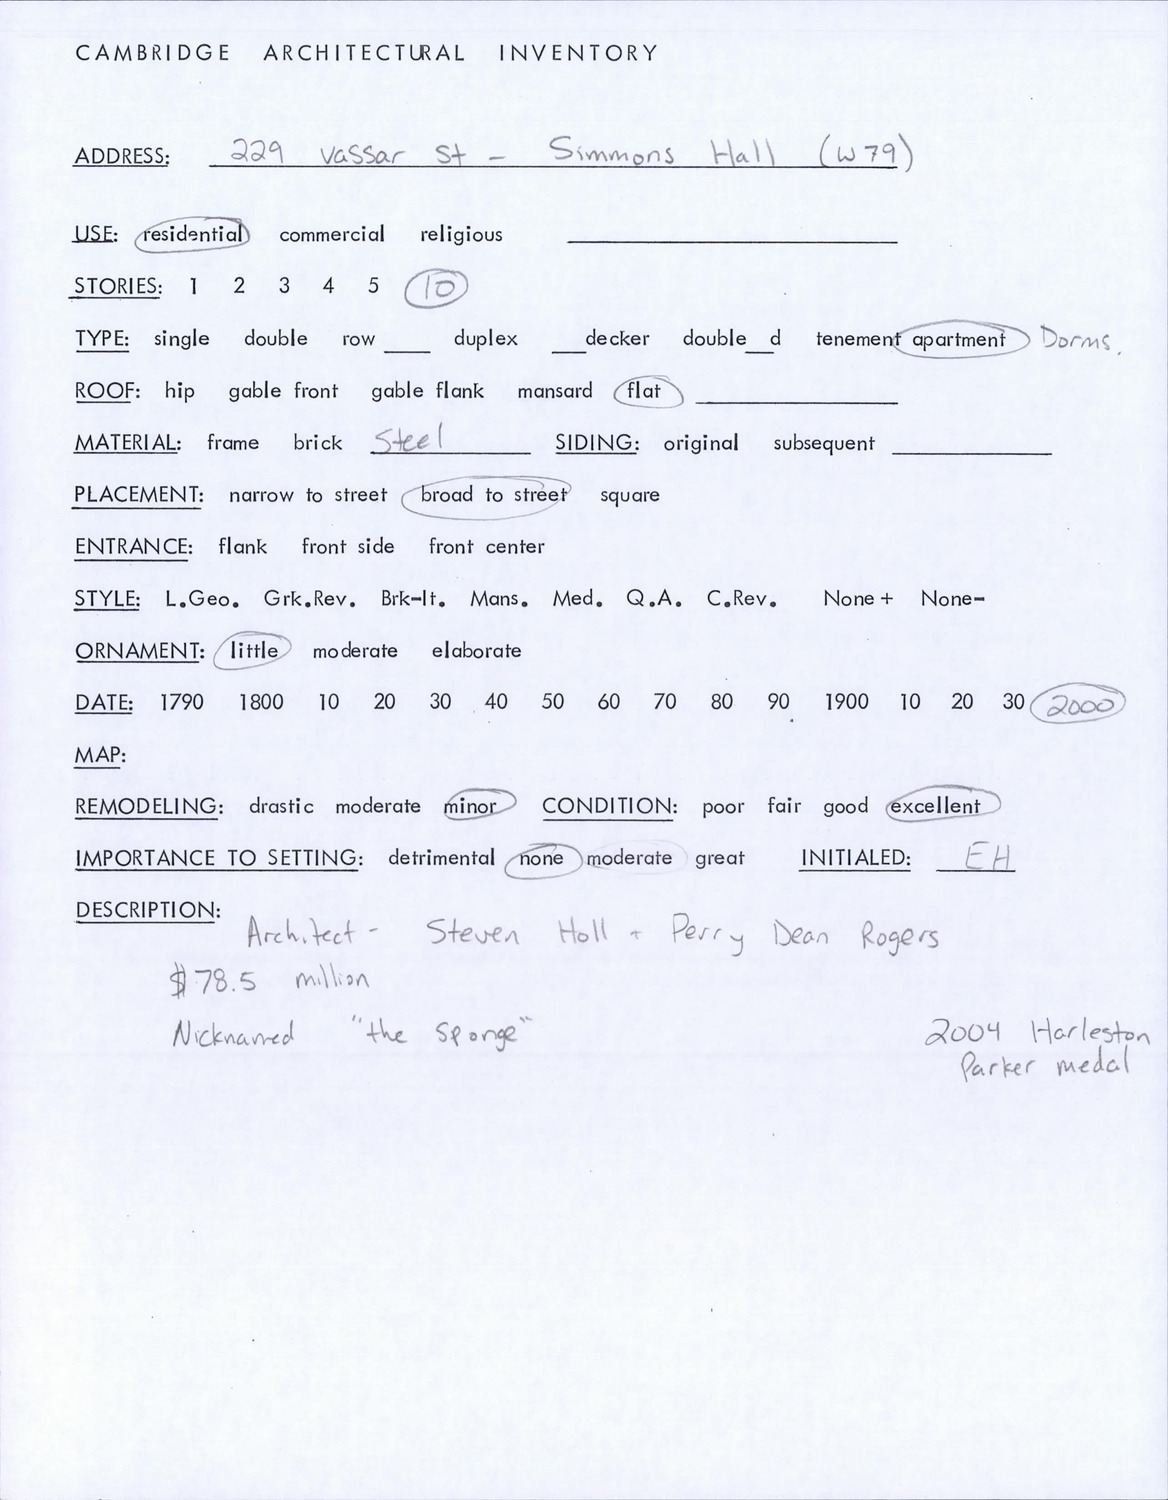 CAMBRIDGE ARCHITECTURAL INVENTORY
ADDRESS: 229 Vassar St - Simmons Hall (W79)
USE: residential commercial religious
STORIES: 1 2 3 4 5 10
TYPE: single double row ____ duplex ___decker double__d tenement apartment Dorms.
ROOF: hip gable front gable flank mansard flat
MATERIAL: frame brick Steel SIDING: original subsequent
PLACEMENT: narrow to street broad to street square
ENTRANCE: flank front side front center
STYLE: L.Geo. Grk.Rev. Brk-It. Mans. Med. Q.A. C.Rev. None+ None-
ORNAMENT: little moderate elaborate
DATE: 1790 1800 10 20 30 40 50 60 70 80 90 1900 10 20 30 2000
MAP:
REMODELING: drastic moderate minor CONDITION: poor fair good excellent
IMPORTANCE TO SETTING: detrimental none moderate great INITIALED: EH
DESCRIPTION:
Architect - Steven Holl + Perry Dean Rogers
$78.5 million
Nicknamed "the Sponge"
2004 Harleston
Parker medal